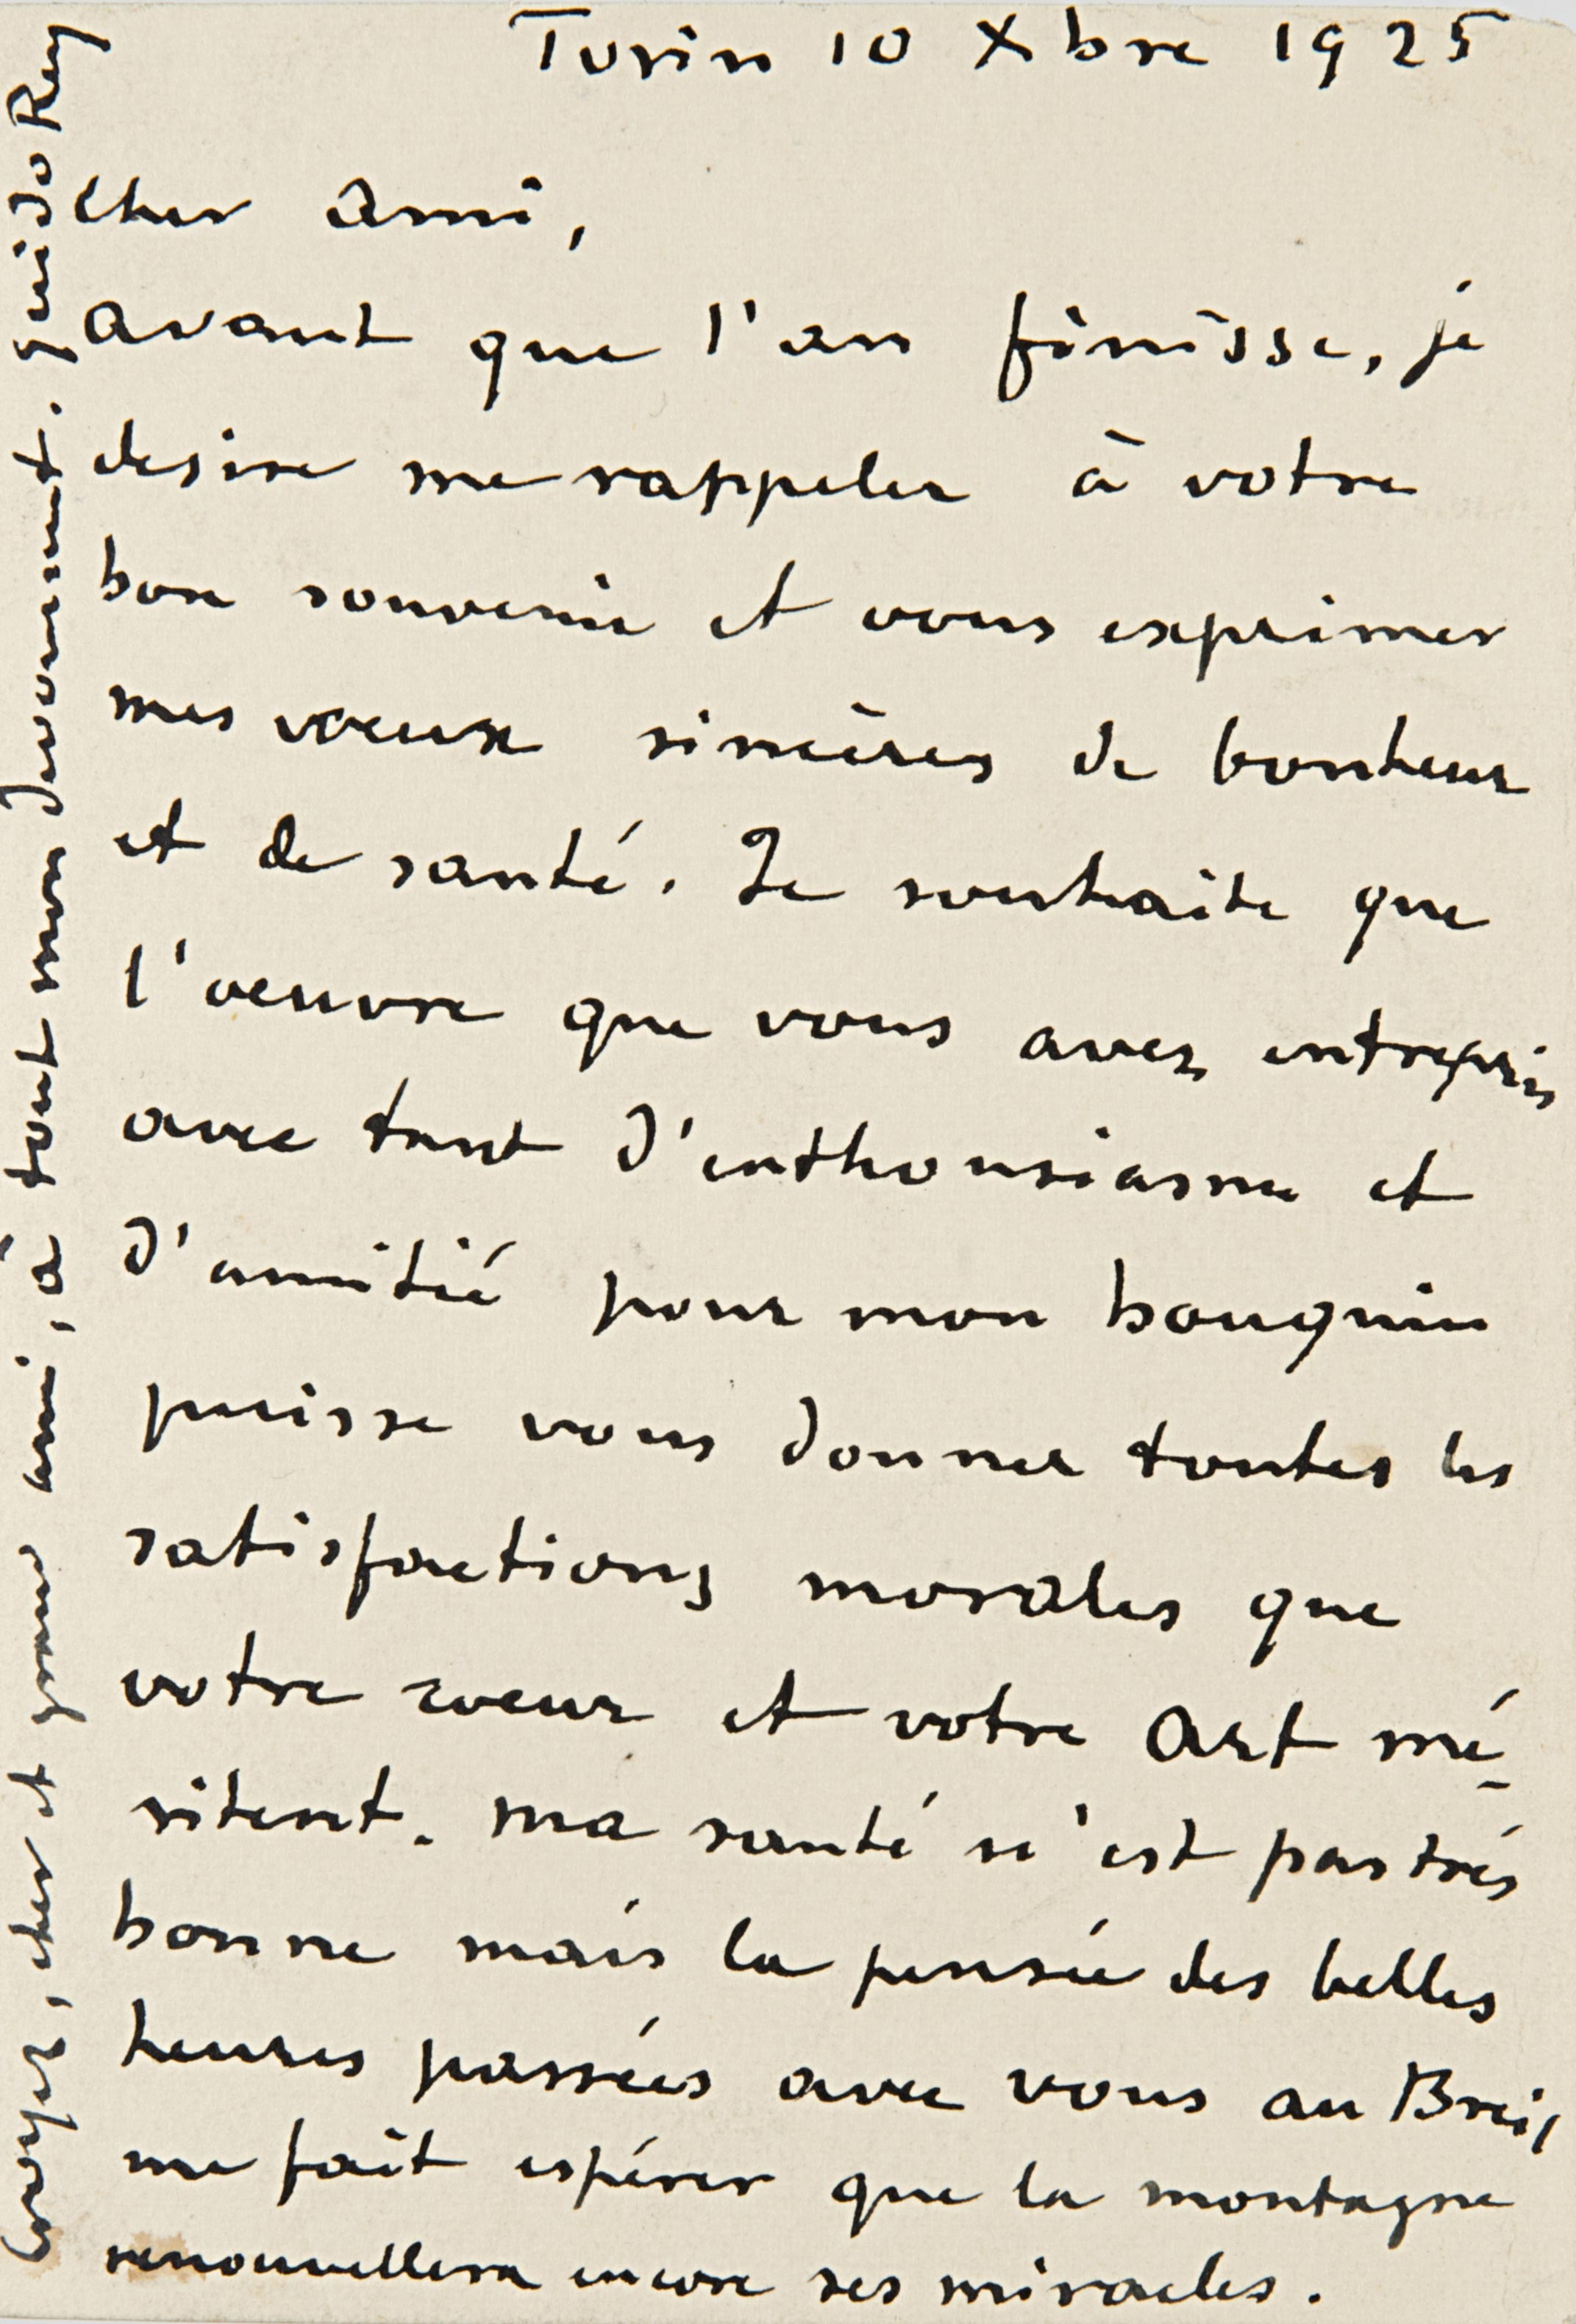 Turin 10 Xbre 1925
Cher Ami,
avant que l'an finisse, je
desire me rappeler à votre
bon souvenir et vous exprimer
mes voeux sincères de bonheur
et de santé. Je souhaite que
l'oeuvre que vous avez entrepris
avec tant d'enthousiasme et
d'amitié pour mon bouquin
puisse vous donner toutes les
satisfactions morales que
votre coeur et votre Art mé-
ritent. Ma santé n'est pas très
bonne mais la pensée des belles
heures passées avec vous au Breil
me fait espérer que la montagne
renouvellera encore ses miracles.
Croyez, cher et grand ami, à tout mon devouement. Guido Rey